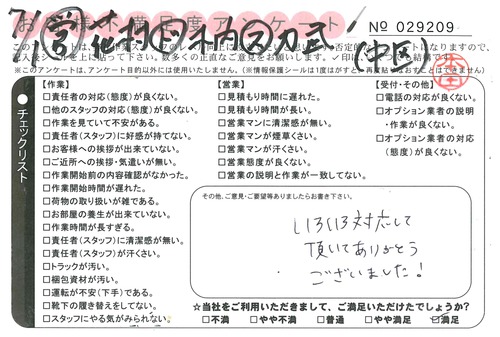 お客様不満足度アンケート
№ 029209
このアンケートは、
※このアンケートは、アンケート目的以外には使用いたしません。(※情報保護シールは1度がすと、再度貼りなおすことはできません)
チェックリスト
【作業】
□責任者の対応(態度)が良くない。
□他のスタッフの対応(態度)が良くない。
□作業を見ていて不安がある。
□責任者(スタッフ)に好感が持てない。
□お客様への挨拶が出来ていない。
□ご近所への挨拶・気遣いが無い。
□作業開始前の内容確認がなかった。
□作業開始時間が遅れた。
□荷物の取り扱いが雑である。
□お部屋の養生が出来ていない。
□作業時間が長すぎる。
□責任者(スタッフ)に清潔感が無い。
□責任者(スタッフ)が汗くさい。
□トラックが汚い。
□梱包資材が汚い。
□運転が不安(下手)である。
□靴下の履き替えをしてない。
□スタッフにやる気がみられない。
【営業】
□見積もり時間に遅れた。
□見積もり時間が長い。
□営業マンに清潔感が無い。
□営業マンが煙草くさい。
□営業マンが汗くさい。
□営業態度が良くない。
□営業の説明と作業が一致してない。
【受付・その他】
□電話の対応が良くない。
□オプション業者の説明
・作業が良くない。
□オプション業者の対応
(態度)が良くない。
その他、ご意見・ご要望等ありましたらお書き下さい。
いろいろ対応して
頂いてありがとう
ございました!
☆当社をご利用いただきまして、ご満足いただけたでしょうか?
□不満 □やや不満 □普通 □やや満足 □満足